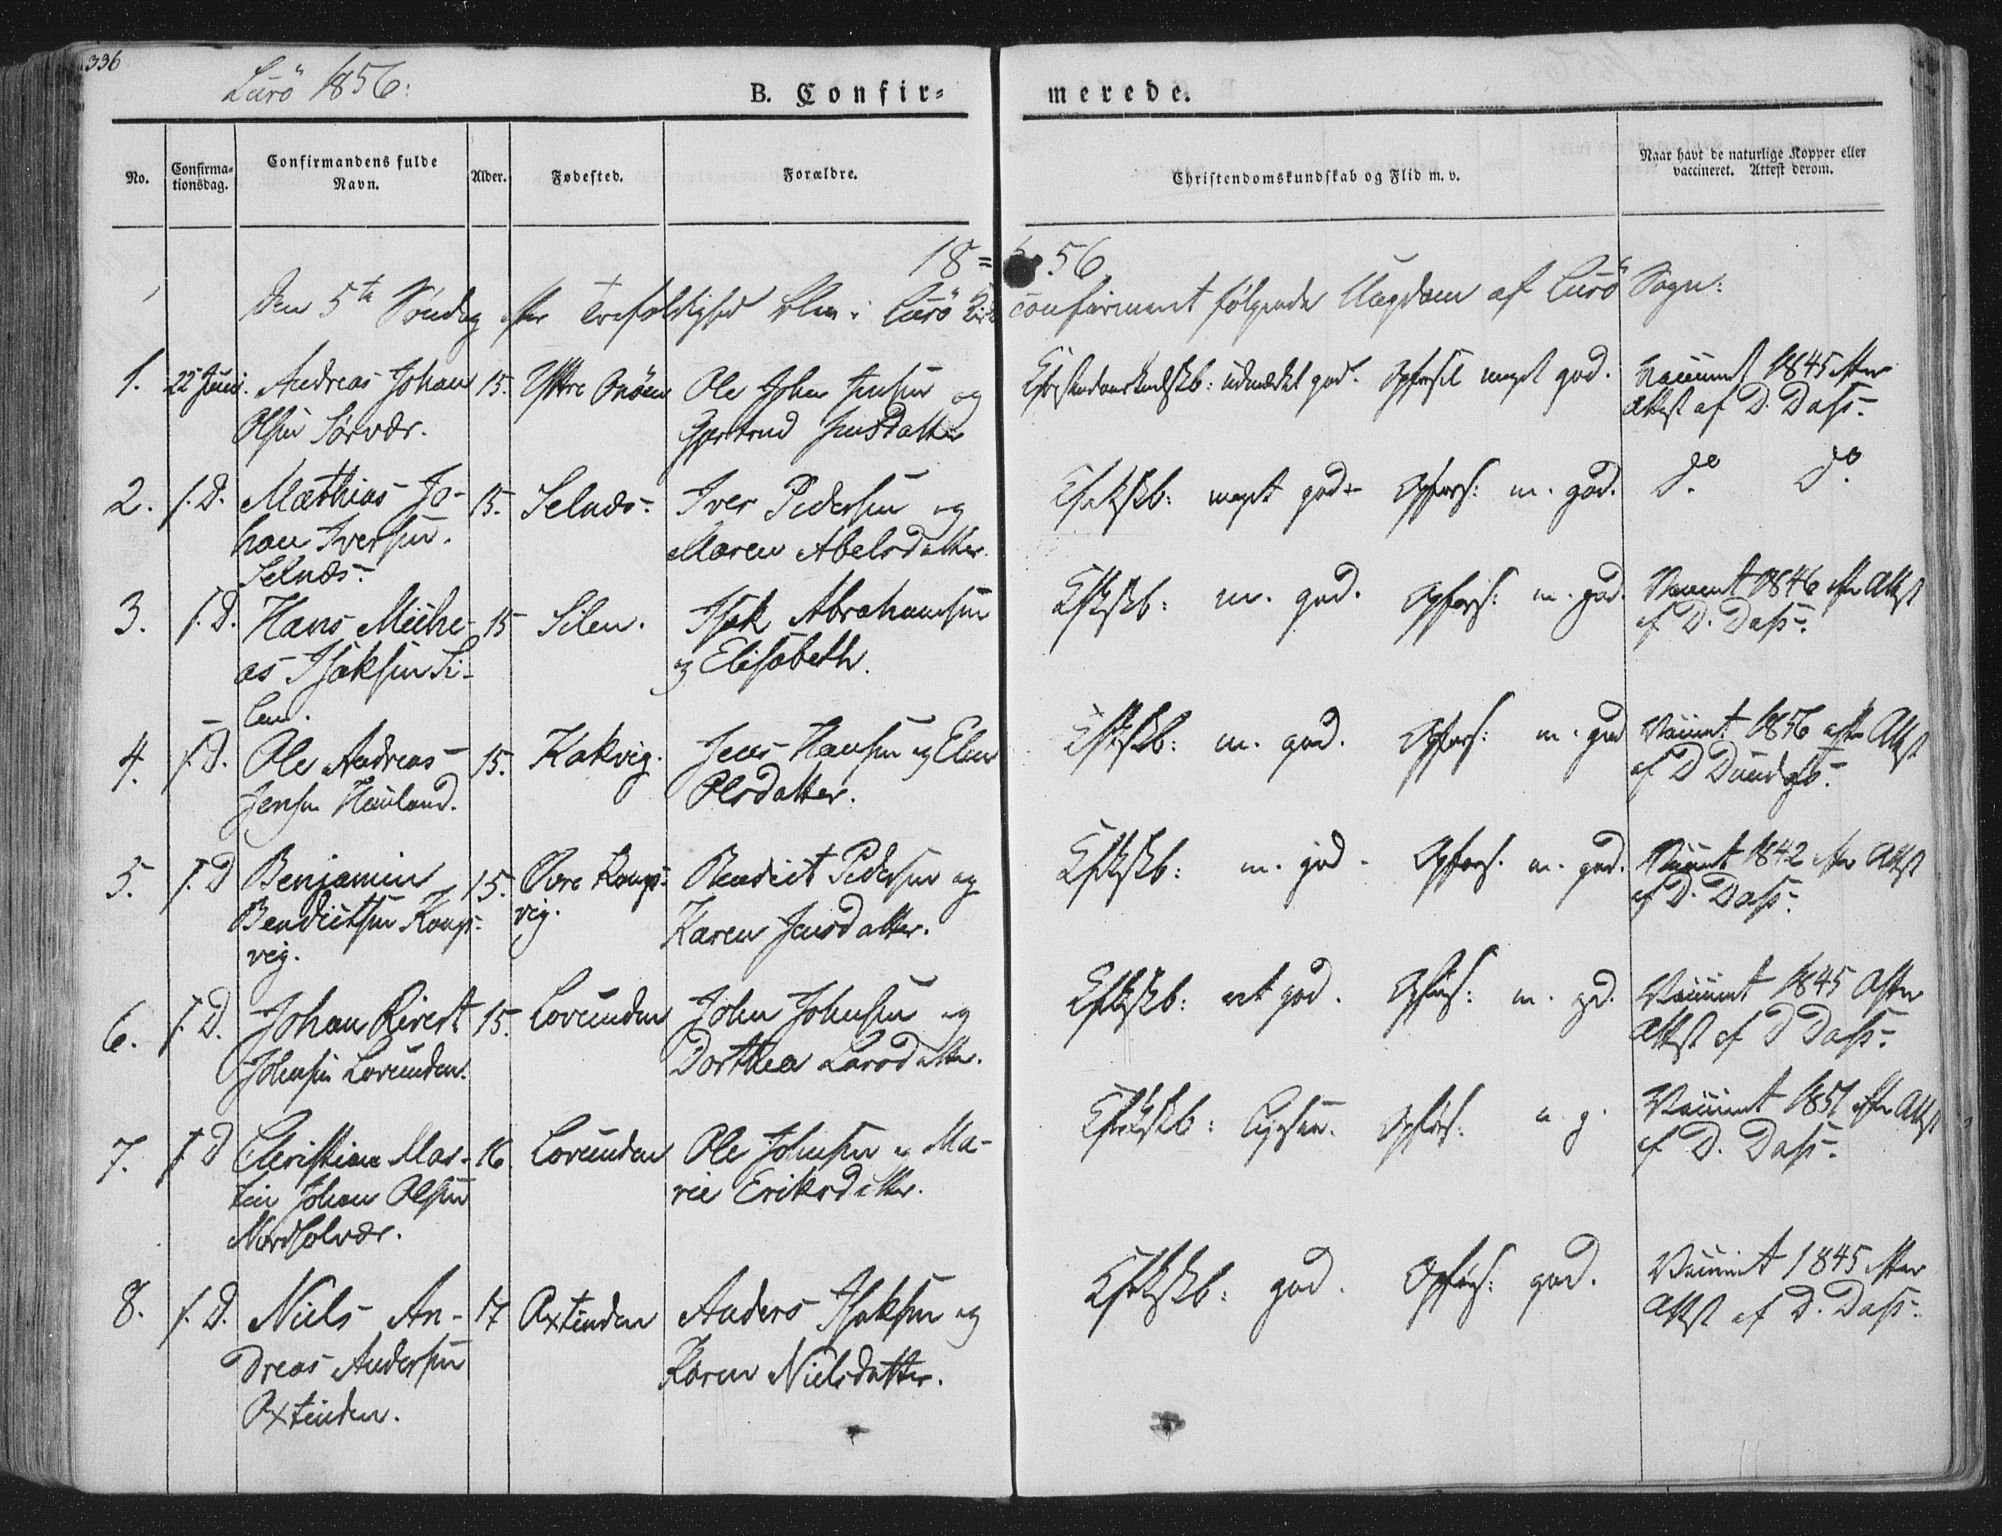 336
Lurö 1856:
B. Confir=
merede.
No.
Confirma=
tionsdag.
Confirmandens fulde
Navn.
Alder.
Fødested.
Forældre.
Christendomskundskab og Flid m. v.
Naar havt de naturlige Kopper eller
vaccineret. Attest derom.
18= 56
Den 5te Söndag efter Trefoldighed blev i Lurö confirmeret følgende Ungdom af Lurö Sogn:
1. 22 Juni. Andreas Johan 15. Yttre Ole Johan Jensen og udmærket god. Opførsel meget god. Vaccineret 1845 efter
Olsen Sörvær. Gjertrud Jensdatter Attest af D. Dass.
2. f. D. Mathias Jo- 15. Selnæs. Iver Pedersen og meget god. Opførs: m. god. Do Do
han Iversen. Maren Abelsdatter.
Selnæs.
3. f. D. Hans Miche- 15 Silen. Isak Abrahamsen m. god. Opførs: m. god. Vaccineret 1846 efter Attest
as Isaksen Si- og Elisabeth. af D. Dass.
len.
4. f. D. Ole Andreas 15. Kakvig. Jens Hansen og Elen m. god. Opførs: m. god Vaccineret 1856 efter Attest
Jensen Olsdatter. af D
5. f. D Benjamin 15. Övre Kongs- Bendict Pedersen og m. god. Opførs. m. god. Vaccineret 1842 efter Attest
Bendictsen Kongs- vig. Karen Jensdatter. af D. Dass.
vig.
6. f. D. Johan Rivert 15. Lovunden John Johnsen og god. Opførs: m. gd. Vaccineret 1845 efter
Johnsen Lovunden. Dorthea Larsdatter. Attest af D Dass.
7. f. D Christian Mar- 16. Lovunden Ole Johnsen og Ma- Opførs. m g. Vaccineret 1851 efter Attest
tin Johan Olsen rie Eriksdatter. af D. Dass.
Nordsolvær.
8. f. D. Niels An- 17 Oxtinden Anders Isaksen og god. Opførs: god. Vaccineret 1845 efter
dreas Andersen Karen Nielsdatter. Attest af D. Dass.
Oxtinden.